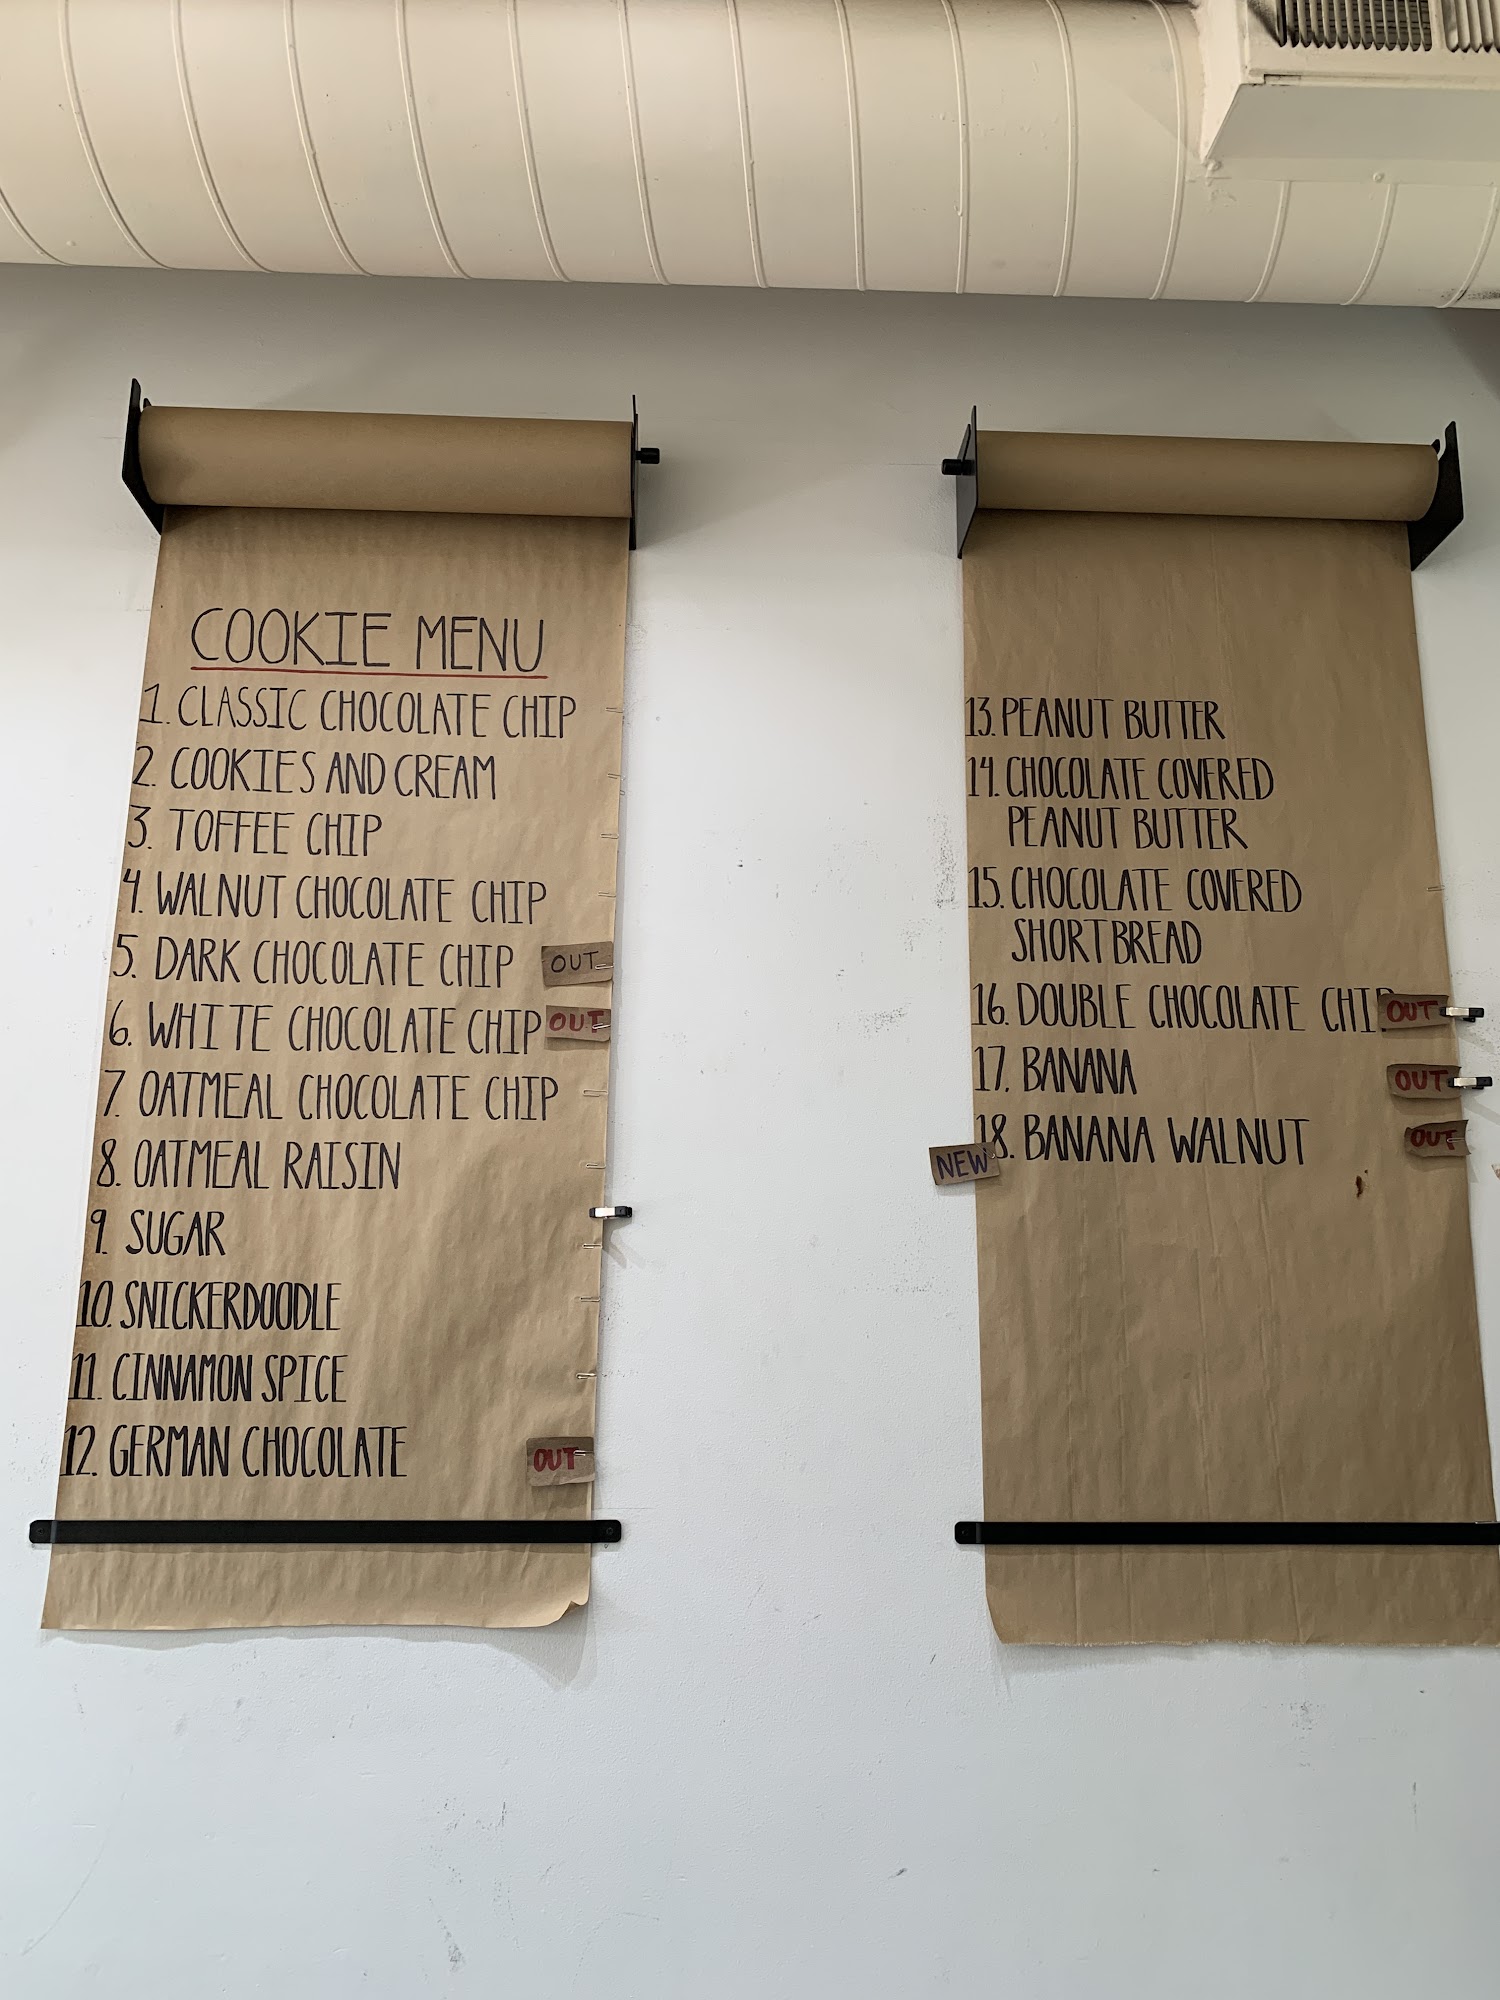 COOKIE MENU
1. CLASSIC CHOCOLATE CHIP
2. COOKIES AND CREAM
3. TOFFEE CHIP
4. WALNUT CHOCOLATE CHIP
5. DARK CHOCOLATE CHIP OUT
6. WHITE CHOCOLATE CHIP OUT
7. OATMEAL CHOCOLATE CHIP
8. OATMEAL RAISIN
9. SUGAR
10. SNICKERDOODLE
11. CINNAMON SPICE
12. GERMAN CHOCOLATE OUT
13. PEANUT BUTTER
14. CHOCOLATE COVERED
PEANUT BUTTER
15. CHOCOLATE COVERED
SHORTBREAD
16. DOUBLE CHOCOLATE CHIP OUT
17. BANANA OUT
NEW 18. BANANA WALNUT OUT